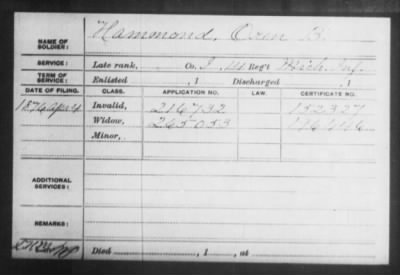 NAME OF SOLDIER: Hammond, Oren B.
SERVICE: Late rank, Co. I, Reg't Mich. Inf.
TERM OF SERVICE: Enlisted , 1 Discharged , 1
DATE OF FILING. CLASS. APPLICATION NO. LAW. CERTIFICATE NO.
1876 Invalid, 216732 152327
Widow, 265053
Minor,
ADDITIONAL SERVICES:
REMARKS:
Died , 1 , at